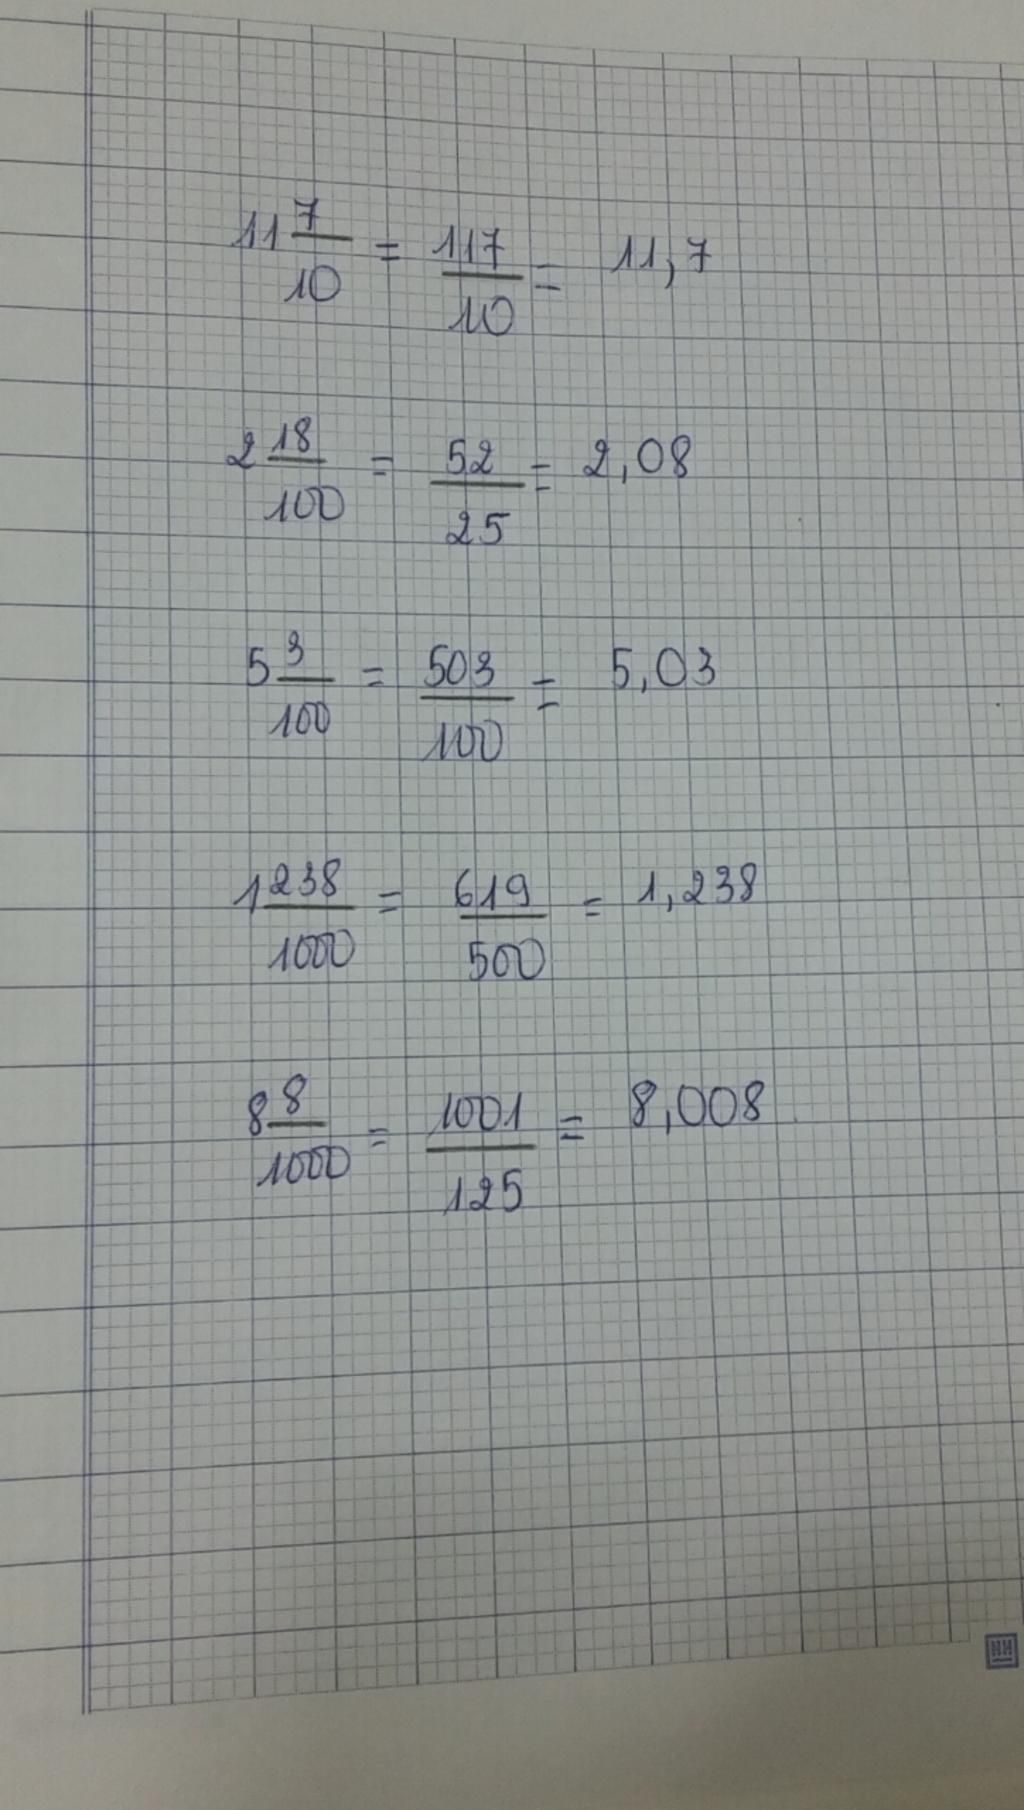 11 7/10 = 117/10 = 11,7
2 18/100 = 52/25 = 2,08
5 3/100 = 503/100 = 5,03
1 238/1000 = 619/500 = 1,238
8 8/1000 = 1001/125 = 8,008